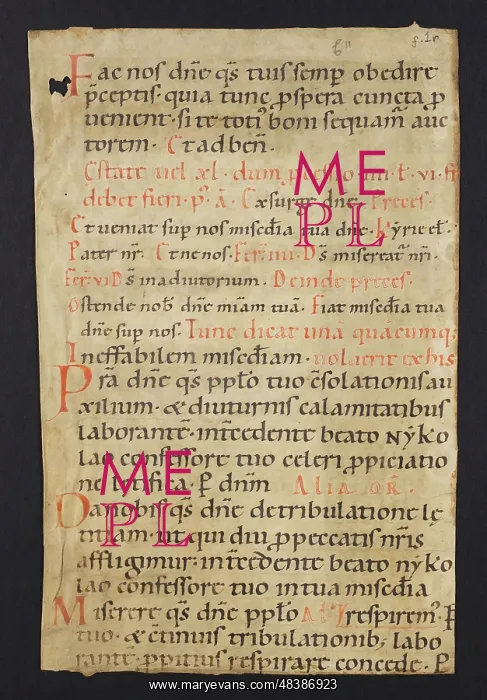 6"
f. 1r
Fac nos dn̄e q̄s tuis semp̄ obedire
p̄ceptis· quia tunc ꝓspera cuncta ꝓ
uenient· si te toti᷒ boni sequam̄ auc
torem· Et ad ben̄·
debet fieri· Exsurge dn̄e· Preces·
Et ueniat sup̄ nos misc̄dia tua dn̄e· Kyrie el̄·
Pater nr̄· Et ne nos· D̄s misereat᷒ nr̄i·
D̄s in adiutorium· Deinde preces·
Ostende nob̄ dn̄e mīam tuā· Fiat misc̄dia tua
dn̄e sup̄ nos· Tunc dicat unā quācumq;
Ineffabilem misc̄diam· uoluerit ex his
Prā dn̄e q̄s pp̄lo tuo c̄solationis au
xilium· & diuturnis calamitatibus
laborantē· int̄cedente beato nyko
lao confessore tuo celeri ꝓpiciatio
ne letifica· ꝑ dn̄m Alia or̄·
Da nobis q̄s dn̄e de tribulatione lę
titiam· ut qui diu ꝓ peccatis nr̄is
affligimur· int̄cedente beato nyko
lao confessore tuo in tua misc̄dia
Miserere q̄s dn̄e pp̄lo respirem᷒· ꝑ
tuo· & c̄tinuis tribulationib; labo
rantē· ꝓpitius respirare concede· ꝑ
ME
PL
ME
PL
www.maryevans.com/48386923